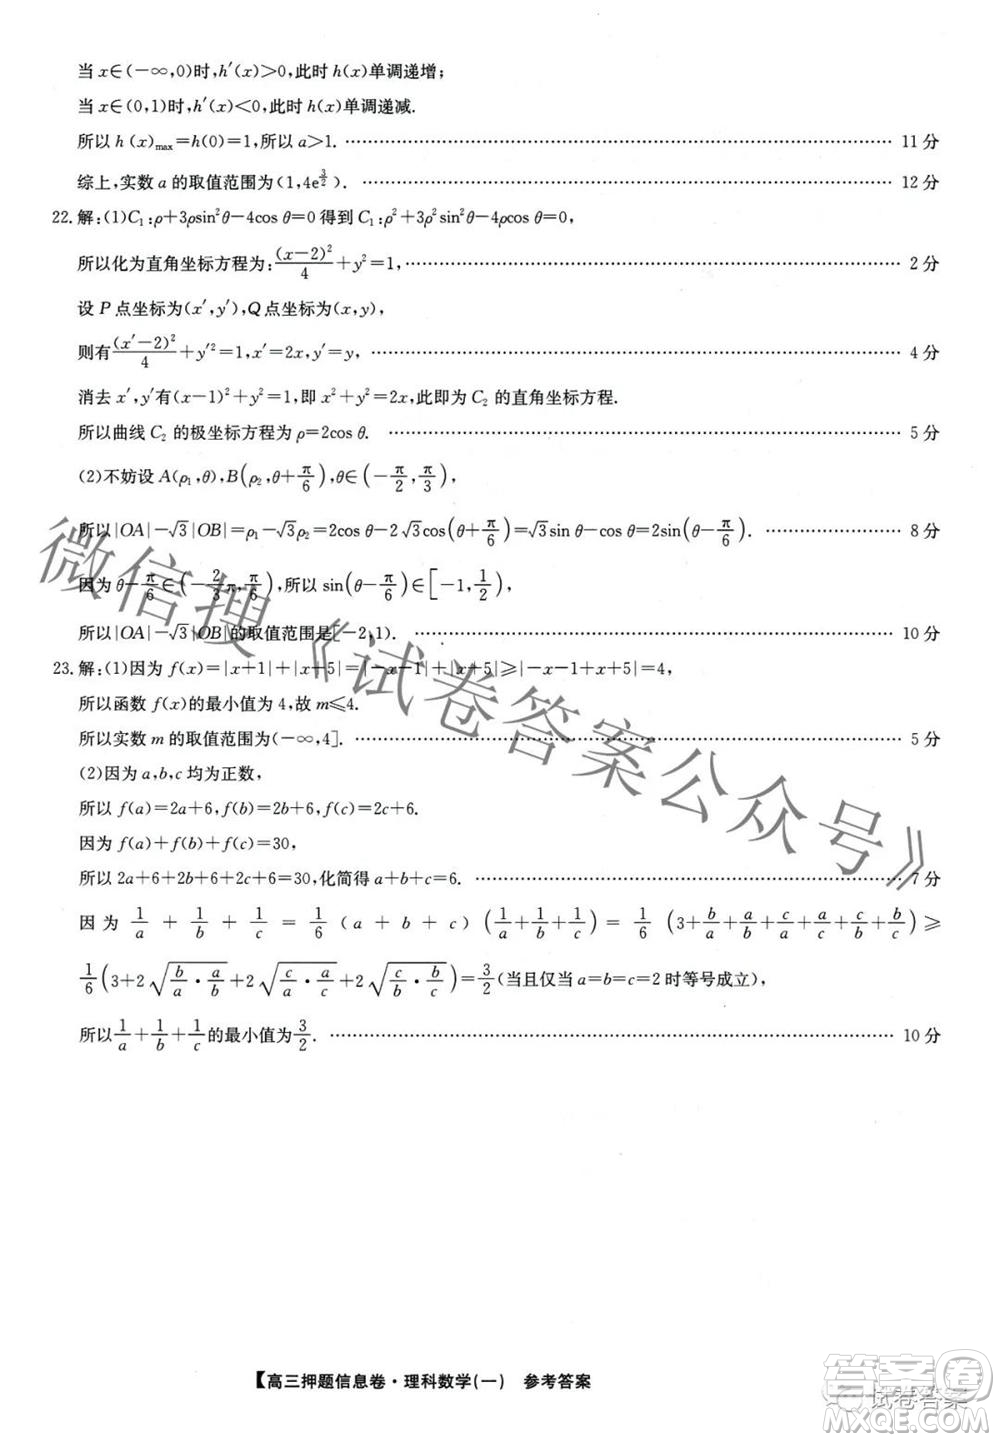 当 x∈(-∞,0)时,h′(x)>0,此时 h(x)单调递增;
当 x∈(0,1)时,h′(x)<0,此时 h(x)单调递减.
所以 h (x)max=h(0)=1,所以 a>1. …… 11 分
综上,实数 a 的取值范围为(1,4e^(3/2)). …… 12 分
22.解:(1)C₁:ρ+3ρsin²θ-4cos θ=0 得到 C₁:ρ²+3ρ²sin²θ-4ρcos θ=0,
所以化为直角坐标方程为:(x-2)²/4+y²=1, …… 2 分
设 P 点坐标为(x′,y′),Q 点坐标为(x,y),
则有(x′-2)²/4+y′²=1,x′=2x,y′=y, …… 4 分
消去 x′,y′有(x-1)²+y²=1,即 x²+y²=2x,此即为 C₂ 的直角坐标方程.
所以曲线 C₂ 的极坐标方程为 ρ=2cos θ. …… 5 分
(2)不妨设 A(ρ₁,θ),B(ρ₂,θ+π/6),θ∈(-π/2,π/3),
所以|OA|-√3|OB|=ρ₁-√3ρ₂=2cos θ-2√3cos(θ+π/6)=√3sin θ-cos θ=2sin(θ-π/6). …… 8 分
因为 θ-π/6∈(-2/3π,π/6),所以 sin(θ-π/6)∈[-1,1/2),
所以|OA|-√3|OB|的取值范围是[-2,1). …… 10 分
23.解:(1)因为 f(x)=|x+1|+|x+5|=|-x-1|+|x+5|≥|-x-1+x+5|=4,
所以函数 f(x)的最小值为 4,故 m≤4.
所以实数 m 的取值范围为(-∞,4]. …… 5 分
(2)因为 a,b,c 均为正数,
所以 f(a)=2a+6,f(b)=2b+6,f(c)=2c+6.
因为 f(a)+f(b)+f(c)=30,
所以 2a+6+2b+6+2c+6=30,化简得 a+b+c=6. …… 7 分
因为 1/a+1/b+1/c=1/6(a+b+c)(1/a+1/b+1/c)=1/6(3+b/a+a/b+c/a+a/c+c/b+b/c)≥
1/6(3+2√(b/a·a/b)+2√(c/a·a/c)+2√(c/b·b/c))=3/2(当且仅当 a=b=c=2 时等号成立),
所以1/a+1/b+1/c的最小值为3/2. …… 10 分
微信搜《试卷答案公众号》
【高三押题信息卷·理科数学(一) 参考答案
试卷答案
答案圈
MXQE.COM